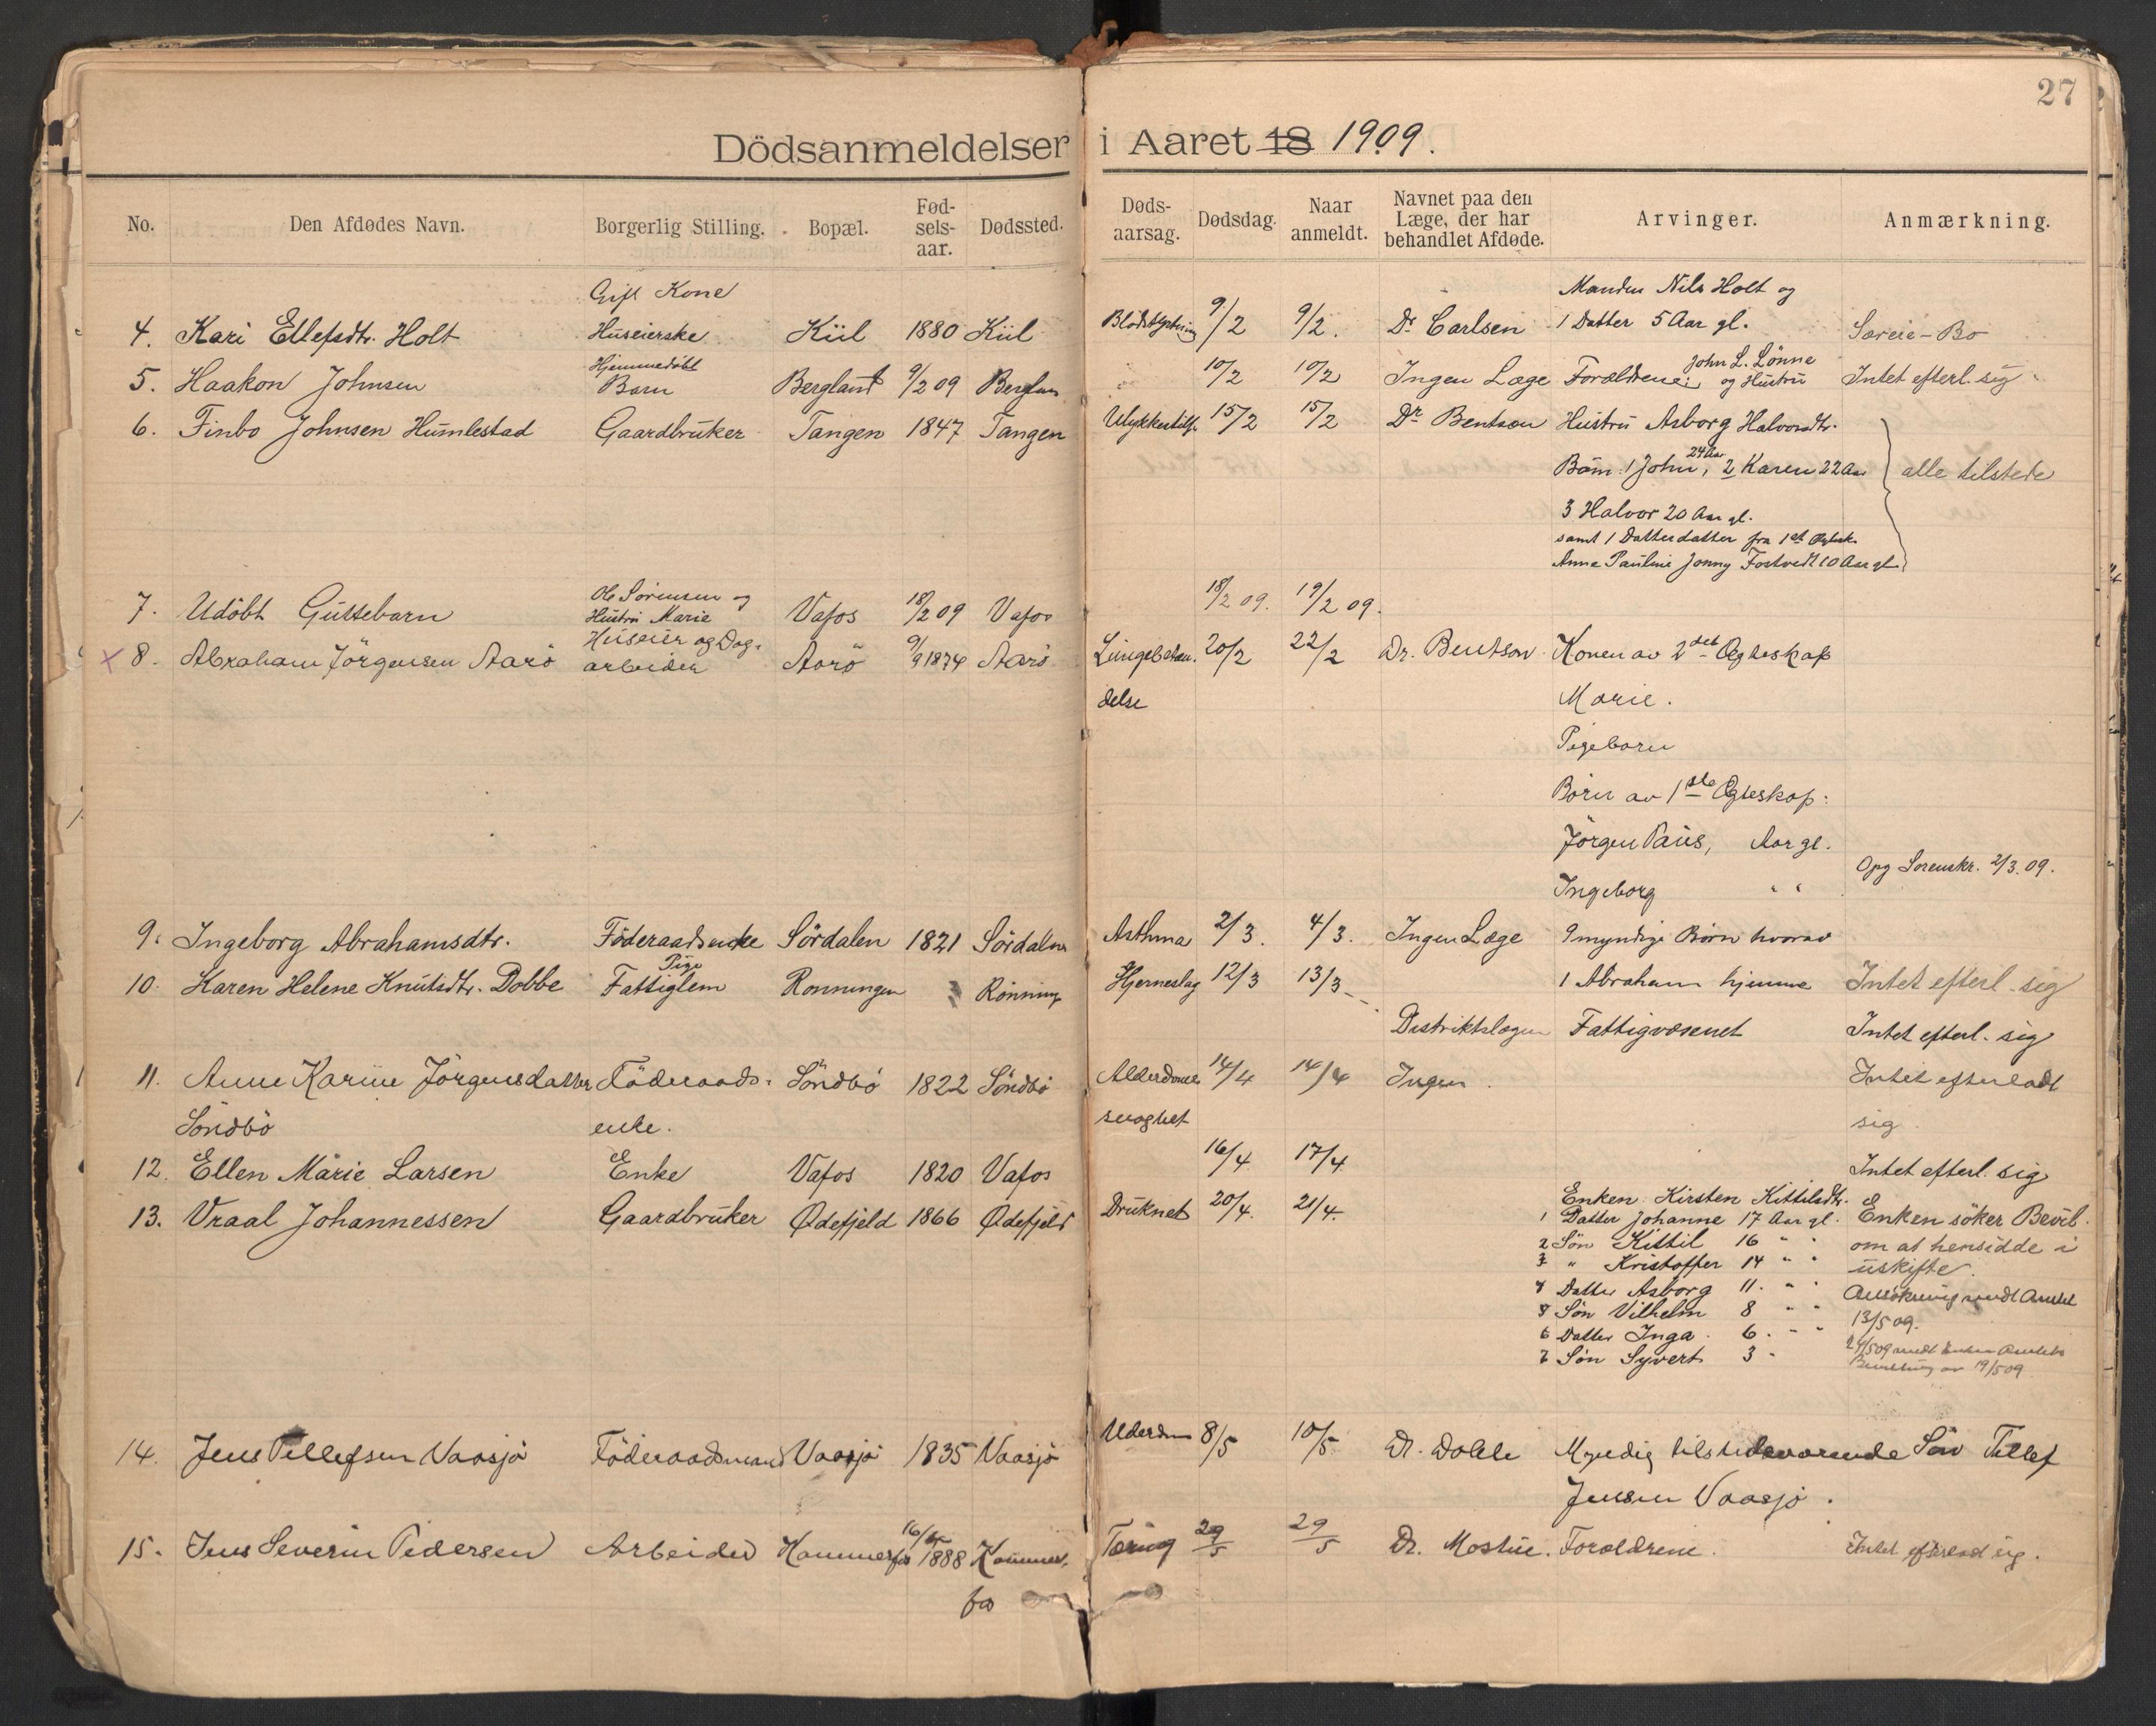 27
Dödsanmeldelser i Aaret 18 1909.
No. Den Afdødes Navn. Borgerlig Stilling. Bopæl. Fød-sels-aar. Dødssted. Døds-aarsag. Dødsdag. Naar anmeldt. Navnet paa den Læge, der har behandlet Afdøde. Arvinger. Anmærkning.
Gift Kone Manden Nils Holt og
4. Kari Ellefsdtr. Holt Huseierske Kiil 1880 Kiil 9/2 9/2. Dr Carlsen 1 Datter 5 Aar gl. Særeie-Bo
Hjemmedøbt John L. Lönne
5. Haakon Johnsen Barn Bergland 9/2 09 10/2 10/2 Ingen Læge Forældrene: og Hustru Intet efterl. sig
6. Finbo Johnsen Humlestad Gaardbruker Tangen 1847 Tangen Ulykkestilf. 15/2 15/2 Dr Bentson Hustru Asborg Halvorsdtr.
24 Aar
Börn: 1 John, 2 Karen 22 Aar alle tilstede
3 Halvor 20 Aar gl.
samt 1 Datterdatter fra 1st Ægtesk.
Anne Pauline Jonny Fostvedt 10 Aar gl.
Ole Sörensen og
7. Udöbt Guttebarn Hustru Marie Vafos 18/2 09 Vafos 18/2 09. 19/2 09.
Huseier og Dag-
8. Abraham Jörgensen Aarö arbeider Aarö 9/9 1874 Aarö Lungebetæn- 20/2 22/2 Dr. Bentson Konen av 2det Ægteskap
delse Marie.
Pigebarn
Börn av 1ste Ægteskap:
Jörgen Paus, Aar gl.
Opg Sorenskr. 2/3.09.
Ingeborg " "
9. Ingeborg Abrahamsdtr. Föderaadsenke Sördalen 1821 Sördalen Asthma 2/3. 4/3. Ingen Læge 9 myndige Börn hvorav
Pige
10. Karen Helene Knutsdtr. Dobbe Fattiglem Rønningen Rønning Hjerneslag 12/3 13/3 1 Abraham hjemme Intet efterl. sig
Distriktslægen Fattigvæsenet Intet efterl. sig
11. Anne Karine Jörgensdatter Föderaads- Söndbö 1822 Söndbö Alderdoms 14/4 14/4 Ingen. Intet efterladt
Söndbö enke. svaghet sig.
12. Ellen Marie Larsen Enke Vafos 1820 Vafos 16/4 17/4 Intet efterl. sig
Enken Kirsten Kittilsdtr.
13. Vraal Johannessen Gaardbruker Ødefjeld 1866 Ødefjeld Druknet 20/4. 21/4. 1 Datter Johanne 17 Aar gl. Enken söker Bevil.
2 Sön Kittil 16 " " om at hensidde i
3 " Kristoffer 14 " " uskifte.
4 Datter Asborg 11. " " Ansökning sendt Amtet
5 Sön Vilhelm 8 " " 13/5 09.
6 Datter Inga 6. " " 24/5 09 sendt Enken Amtets
7 Sön Syvert 3 " Bevilling av 19/5 09
14. Jens Tellefsen Vaasjö Föderaadsmand Vaasjö 1835 Vaasjö 8/5 10/5 Dr. Dahle Myndig tilstedeværende Sön Tellef
Jensen Vaasjö.
16/
15. Jens Severin Pedersen Arbeider Kammerfos 1888 Kammer- Tæring 29/5 29/5 Dr. Mostue. Forældrene. Intet efterlad sig.
fos